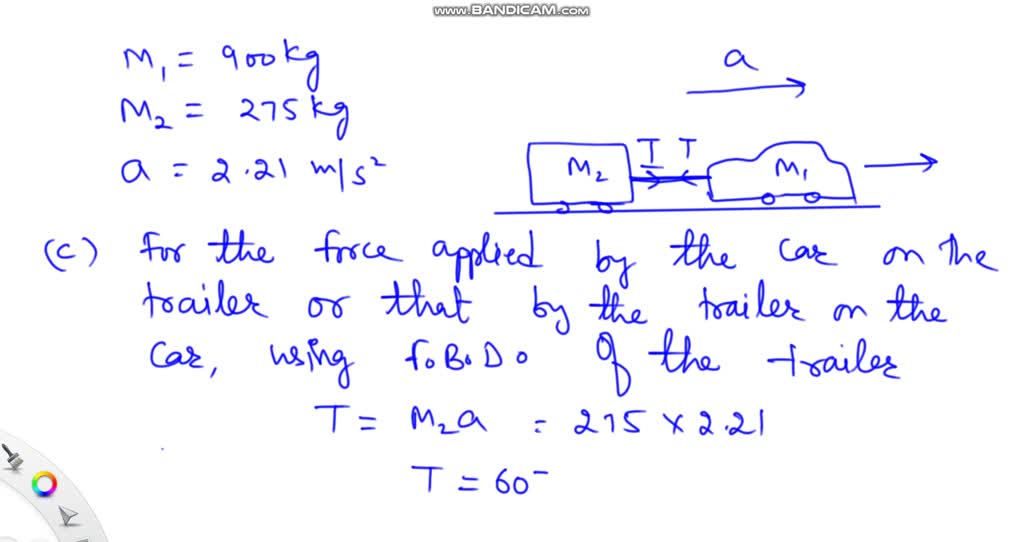 www.BANDICAM.com
M₁ = 900 kg
M₂ = 275 kg
a = 2.21 m/s²
a
M₂
T T
M₁
(c) For the force applied by the car on the
trailer or that by the trailer on the
car, using F.B.D. of the trailer
T = M₂a = 275 × 2.21
T = 60